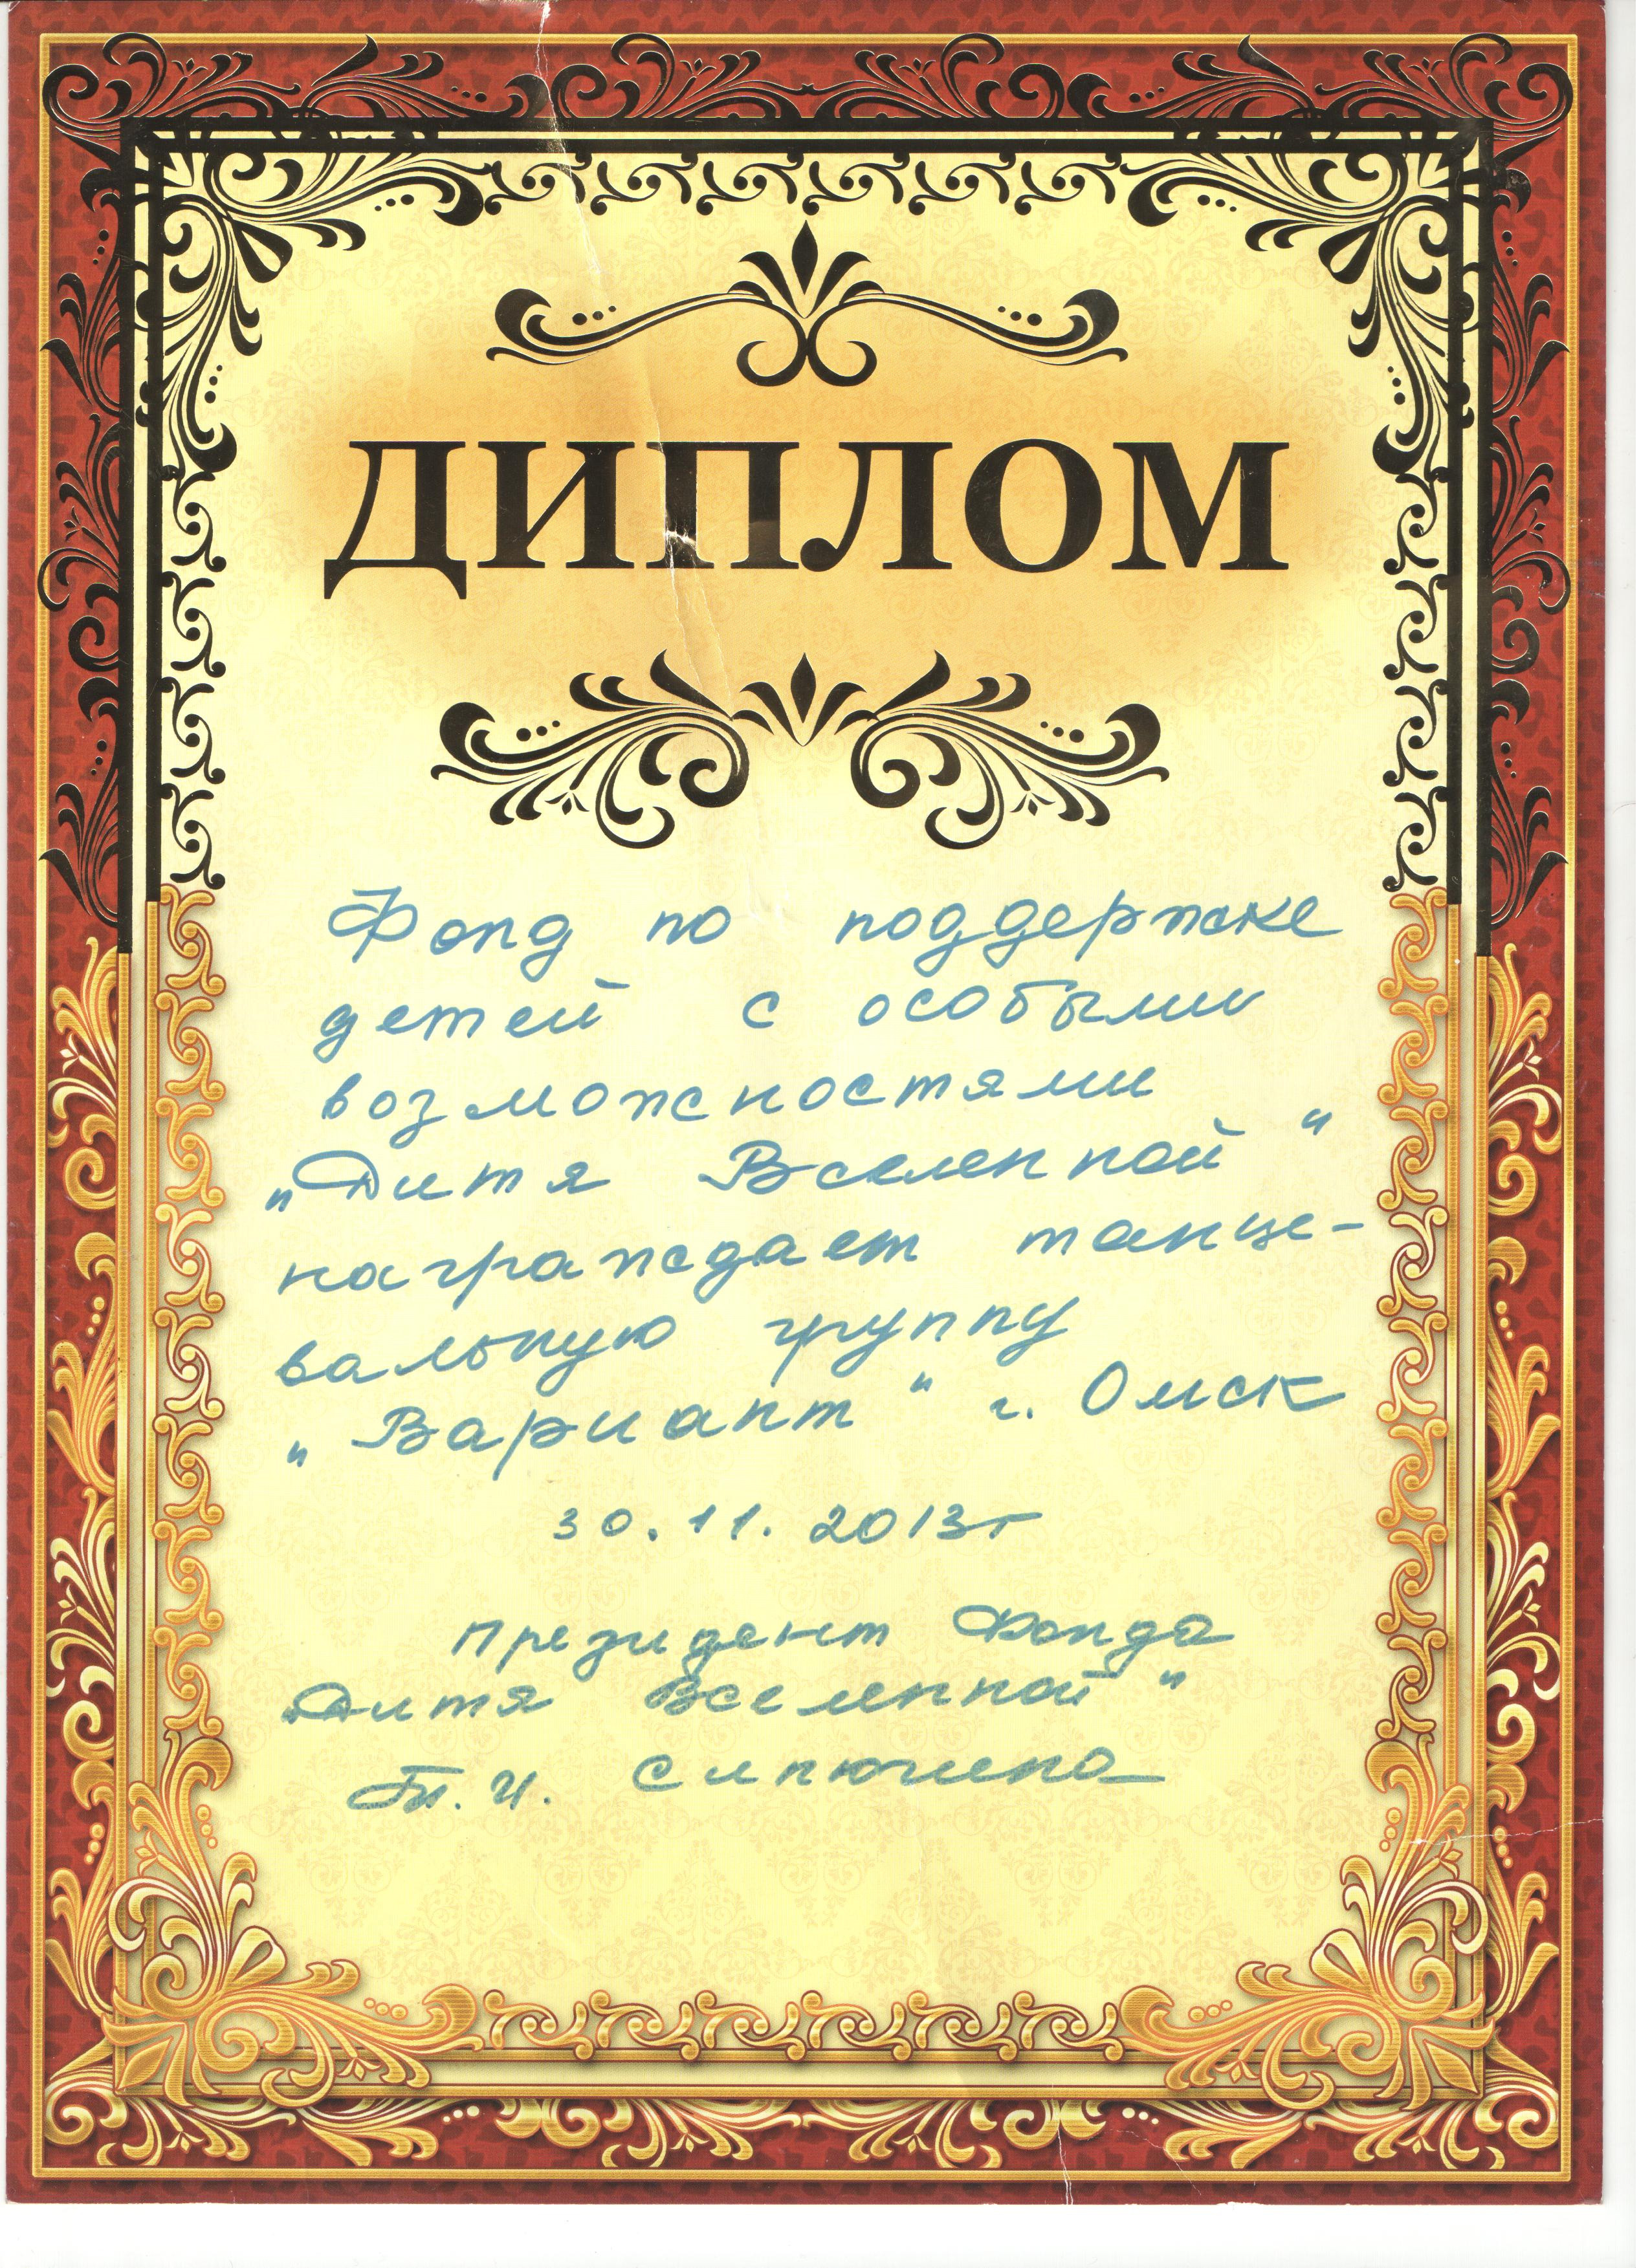 ДИПЛОМ
Фонд по поддержке
детей с особыми
возможностями
„Дитя Вселенной“
награждает танце-
вальную группу
„Вариант“ г. Омск
30.11.2013г
Президент Фонда
Дитя Вселенной“
Т. И.